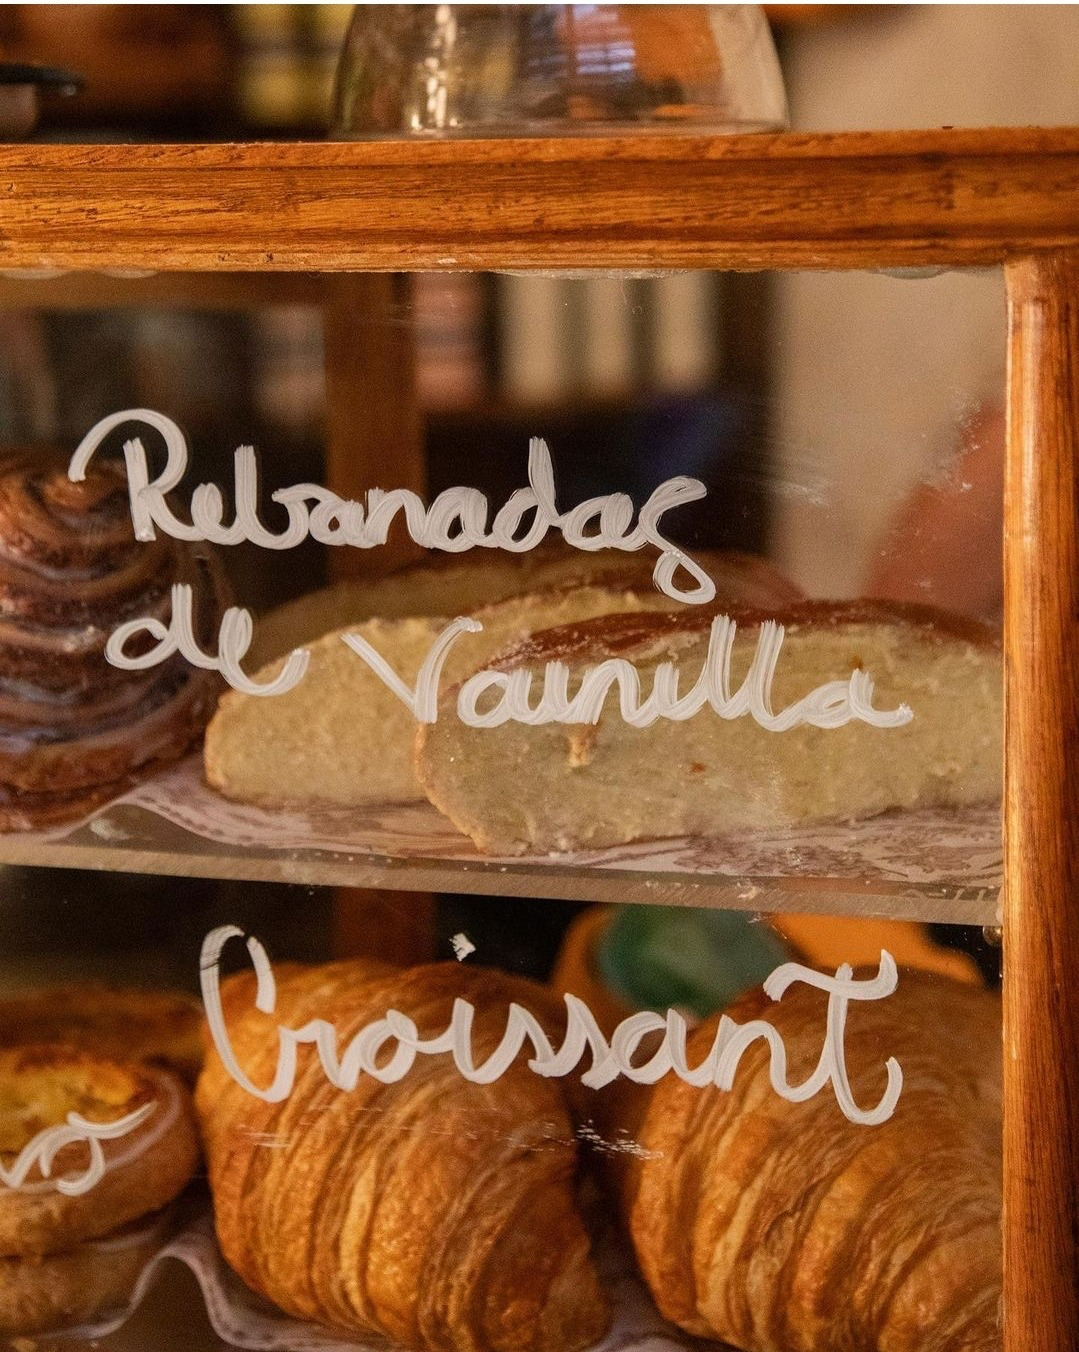 Rebanadas
de Vainilla
Croissant